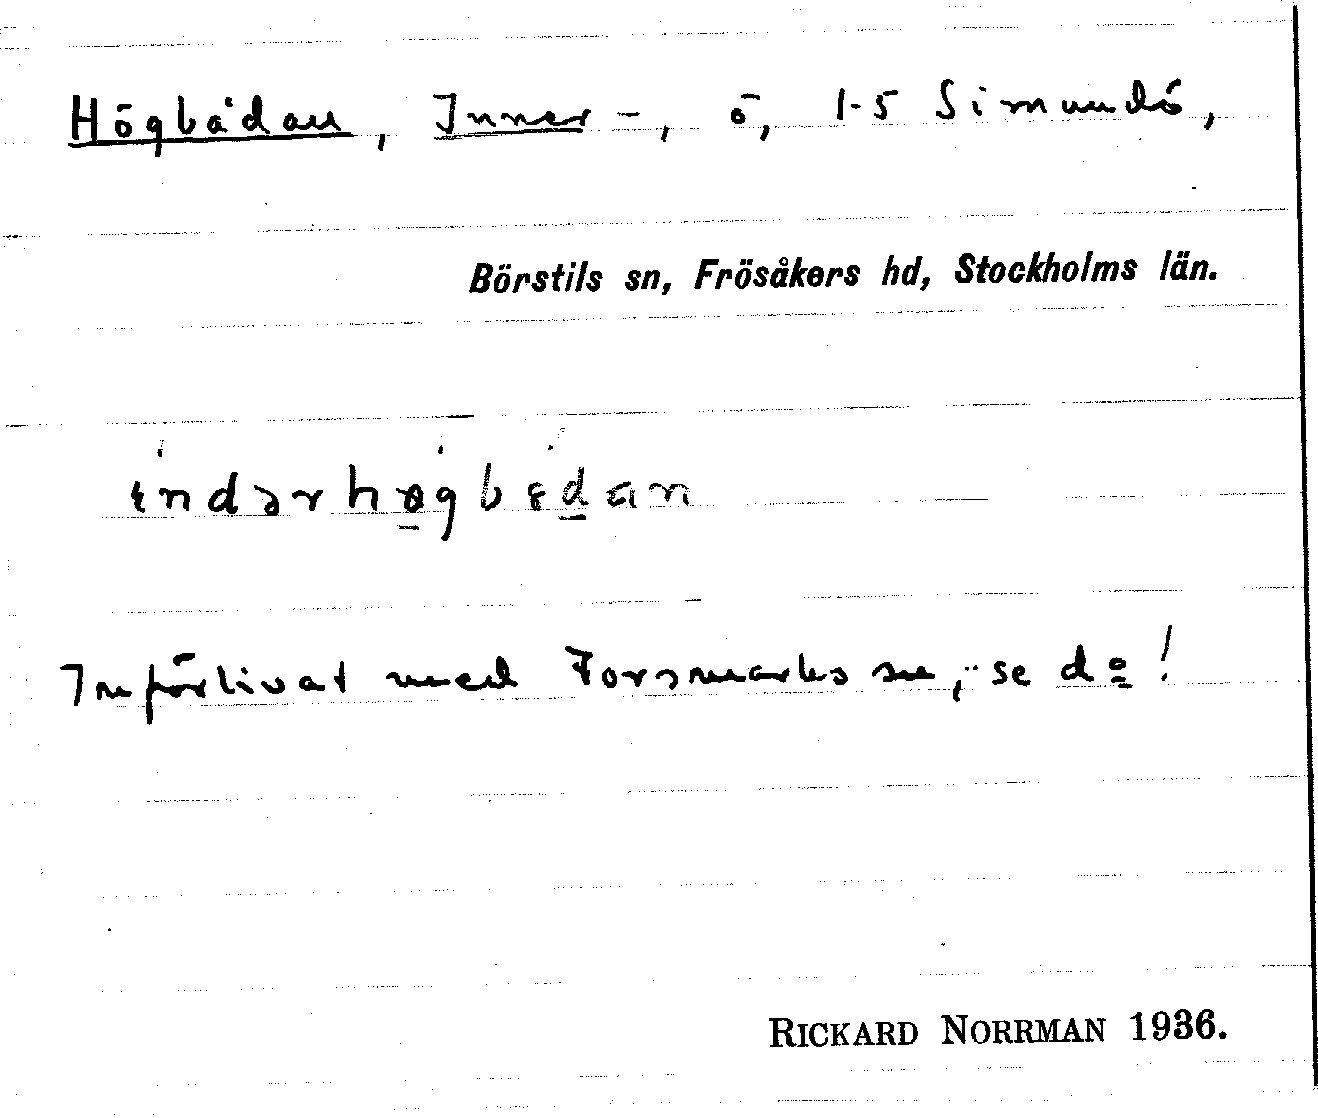 Högbådan, Inner -, ö, 1-5 Simundö,
Börstils sn, Frösåkers hd, Stockholms län.
indərhøgbådan
Införlivat med Forsmarks sn, se do!
RICKARD NORRMAN 1936.